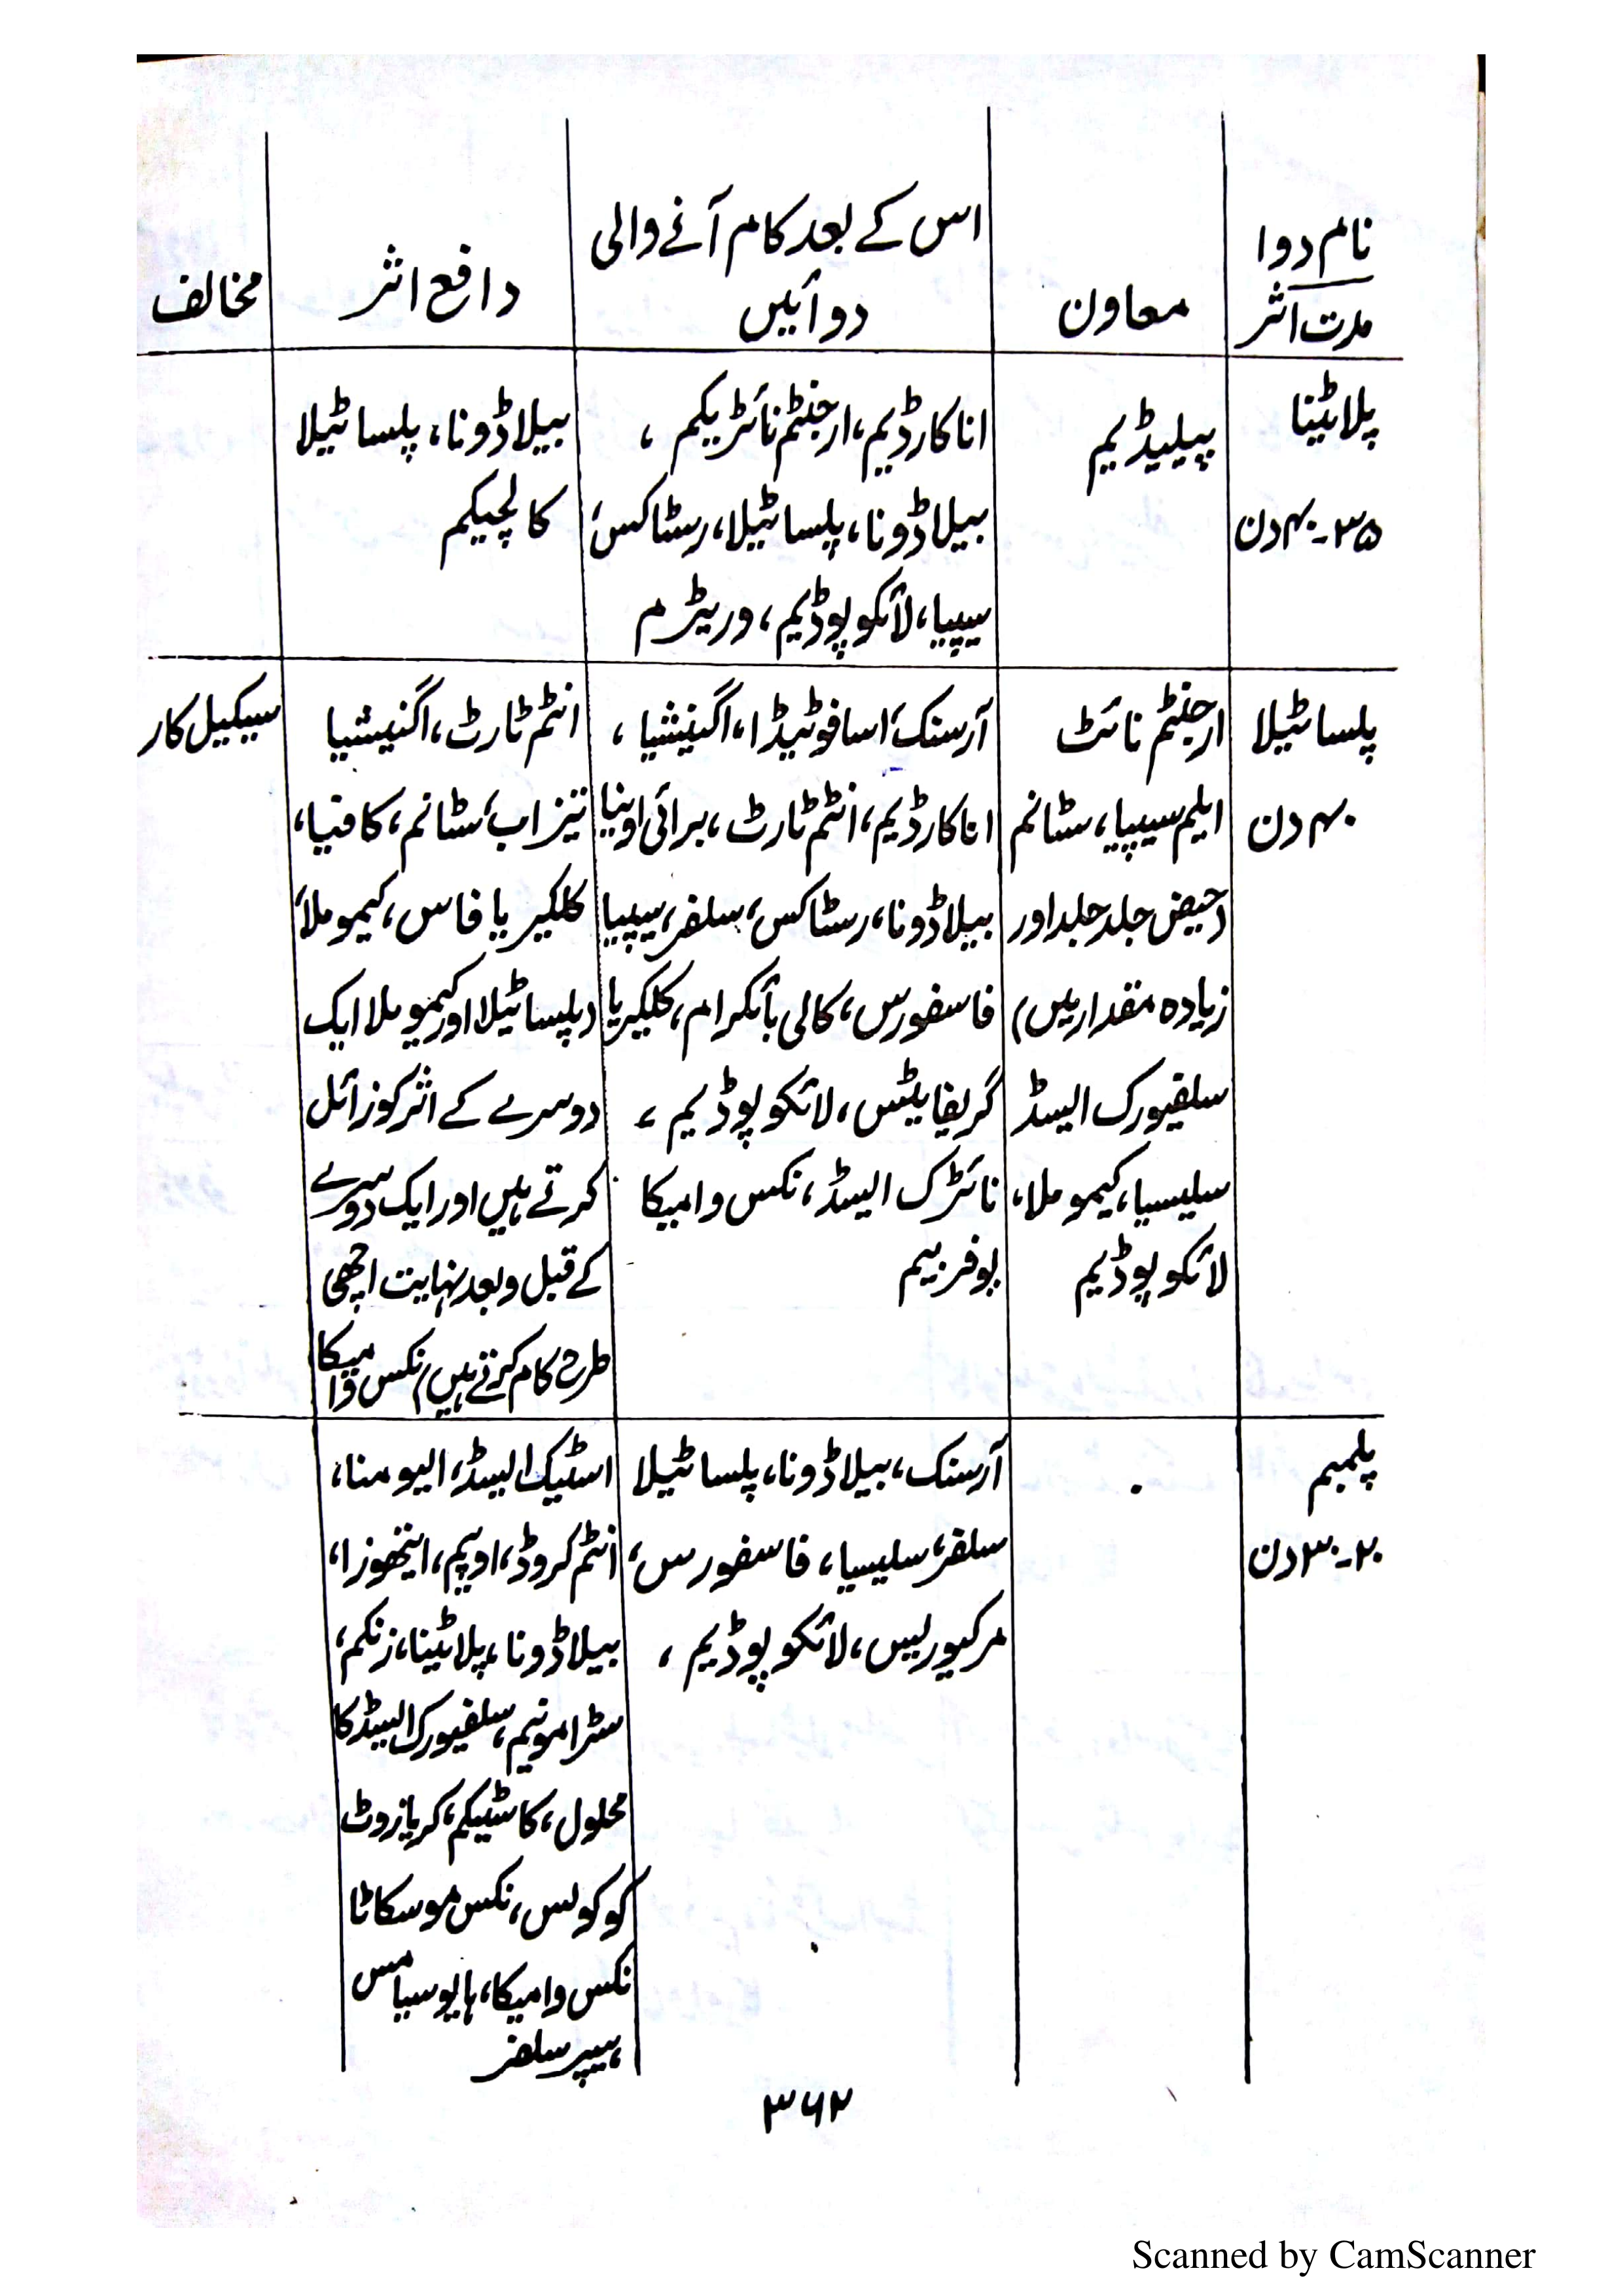 نام دوا
مدت اثر
معاون
اس کے بعد کام آنے والی
دوائیں
دافع اثر
مخالف
پلاٹینا
۳۵-۴۰ دن
پیلیڈیم
اناکارڈیم، ارجنٹم نائٹریکم،
بیلاڈونا، پلساٹیلا، رسٹاکس،
سیپیا، لائکوپوڈیم، وریٹرم
بیلاڈونا، پلساٹیلا
کالچیکم
پلساٹیلا
۴۰ دن
ارجنٹم نائٹ
ایلیم سیپیا، سٹانم
(حیض جلد جلد اور
زیادہ مقدار میں)
سلفیورک ایسڈ
سلیسیا، کیموملا،
لائکوپوڈیم
آرسنک، اسافوٹیڈا، اگنیشیا،
اناکارڈیم، انٹم ٹارٹ، برائی اونیا
بیلاڈونا، رسٹاکس، سلفر، سیپیا
فاسفورس، کالی بائکرام، کلکیریا
گریفائٹس، لائکوپوڈیم،
نائٹرک ایسڈ، نکس وامیکا
یوفربیم
انٹم ٹارٹ، اگنیشیا
تیزاب، سٹانم، کافیا،
کلکیریا فاس، کیموملا،
(پلساٹیلا اور کیموملا ایک
دوسرے کے اثر کو زائل
کرتے ہیں اور ایک دوسرے
کے قبل و بعد نہایت اچھی
طرح کام کرتے ہیں) نکس وامیکا
سیکیل کار
پلمبم
۲۰-۳۰ دن
آرسنک، بیلاڈونا، پلساٹیلا
سلفر، سلیسیا، فاسفورس،
مرکیوریس، لائکوپوڈیم،
اسٹیک ایسڈ، الیومنا،
انٹم کروڈ، اوپیم، ایتھوزا،
بیلاڈونا، پلاٹینا، زنکم،
سٹرامونیم، سلفیورک ایسڈ کا
محلول، کاسٹیکم، کریازوٹ
کوکولس، نکس موسکاٹا
نکس وامیکا، ہایوسیامس
ہیپر سلفر
۳۶۲
Scanned by CamScanner